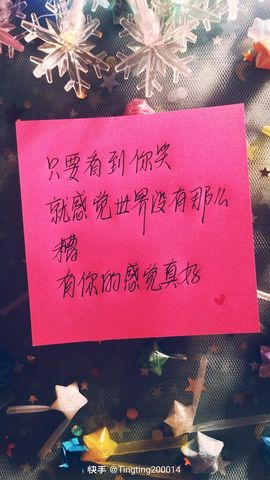 只要看到你笑
就感觉世界没有那么
糟
有你的感觉真好
快手 @Tingting200014